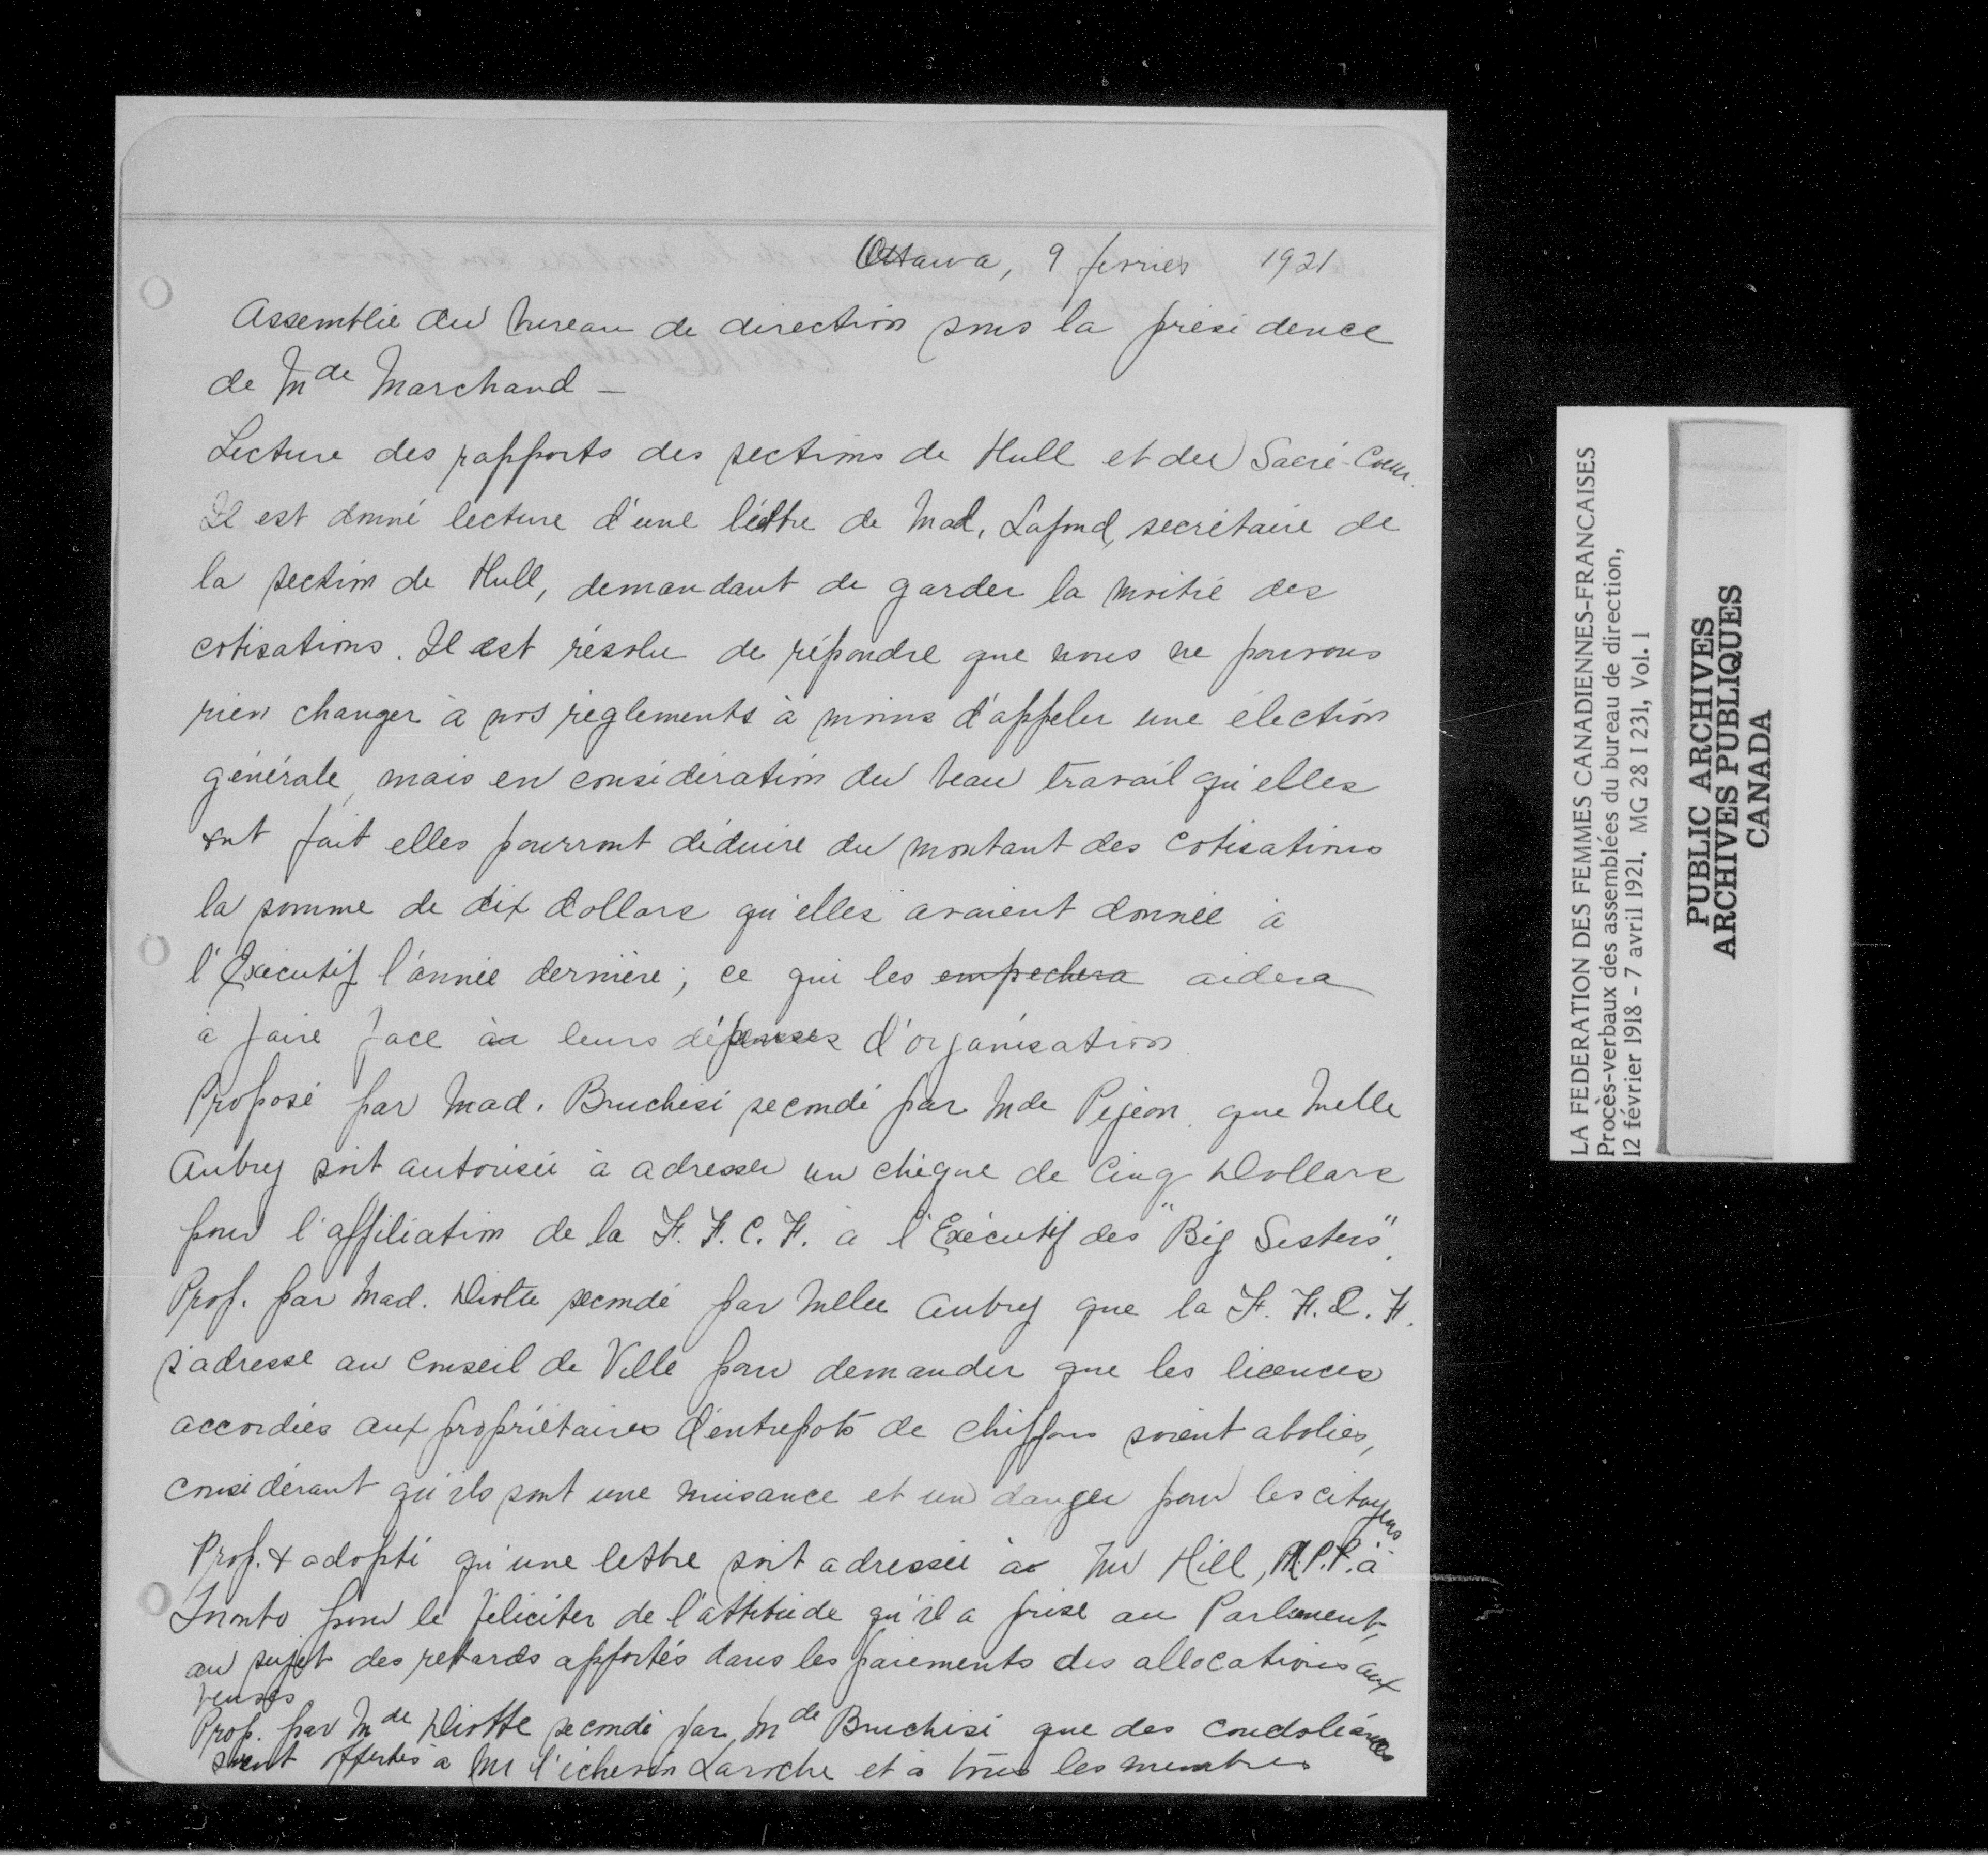 Ottawa, 9 février 1921
Assemblée du bureau de direction sous la présidence
de Mde Marchand –
Lecture des rapports des sections de Hull et du Sacré-Coeur.
Il est donné lecture d'une lettre de Mad. Lafond, secrétaire de
la section de Hull, demandant de garder la moitié des
cotisations. Il est résolu de répondre que nous ne pouvons
rien changer à nos règlements à moins d'appeler une élection
générale, mais en considération du beau travail qu'elles
ont fait elles pourront déduire du montant des cotisations
la somme de dix dollars qu'elles avaient donnée à
l'Exécutif l'année dernière; ce qui les empechera aidera
à faire face à leurs dépenses d'organisation.
Proposé par Mad. Bruchesi secondé par Mde Pigeon, que Melle
Aubry soit autorisée à adresser un chèque de Cinq Dollars
pour l'affiliation de la F. F. C. F. à l'Exécutif des "Big Sisters".
Prop. par Mad. Diotte secondé par Melle Aubry que la F. F. C. F.
s'adresse au Conseil de Ville pour demander que les licences
accordées aux propriétaires d'entrepots de chiffons soient abolies,
considérant qu'ils sont une nuisance et un danger pour les citoyens
Prop. & adopté qu'une lettre soit adressée à Mr Hill, M.P.P. à
Toronto pour le féliciter de l'attitude qu'il a prise au Parlement,
au sujet des retards apportés dans les paiements des allocations aux
veuves.
Prop. par Mde Diotte secondé par Mde Bruchési que des condoléances
soient offertes à Mr l'échevin Laroche et à tous les membres
LA FEDERATION DES FEMMES CANADIENNES-FRANCAISES
Procès-verbaux des assemblées du bureau de direction,
12 février 1918 - 7 avril 1921. MG 28 I 231, Vol. 1
PUBLIC ARCHIVES
ARCHIVES PUBLIQUES
CANADA